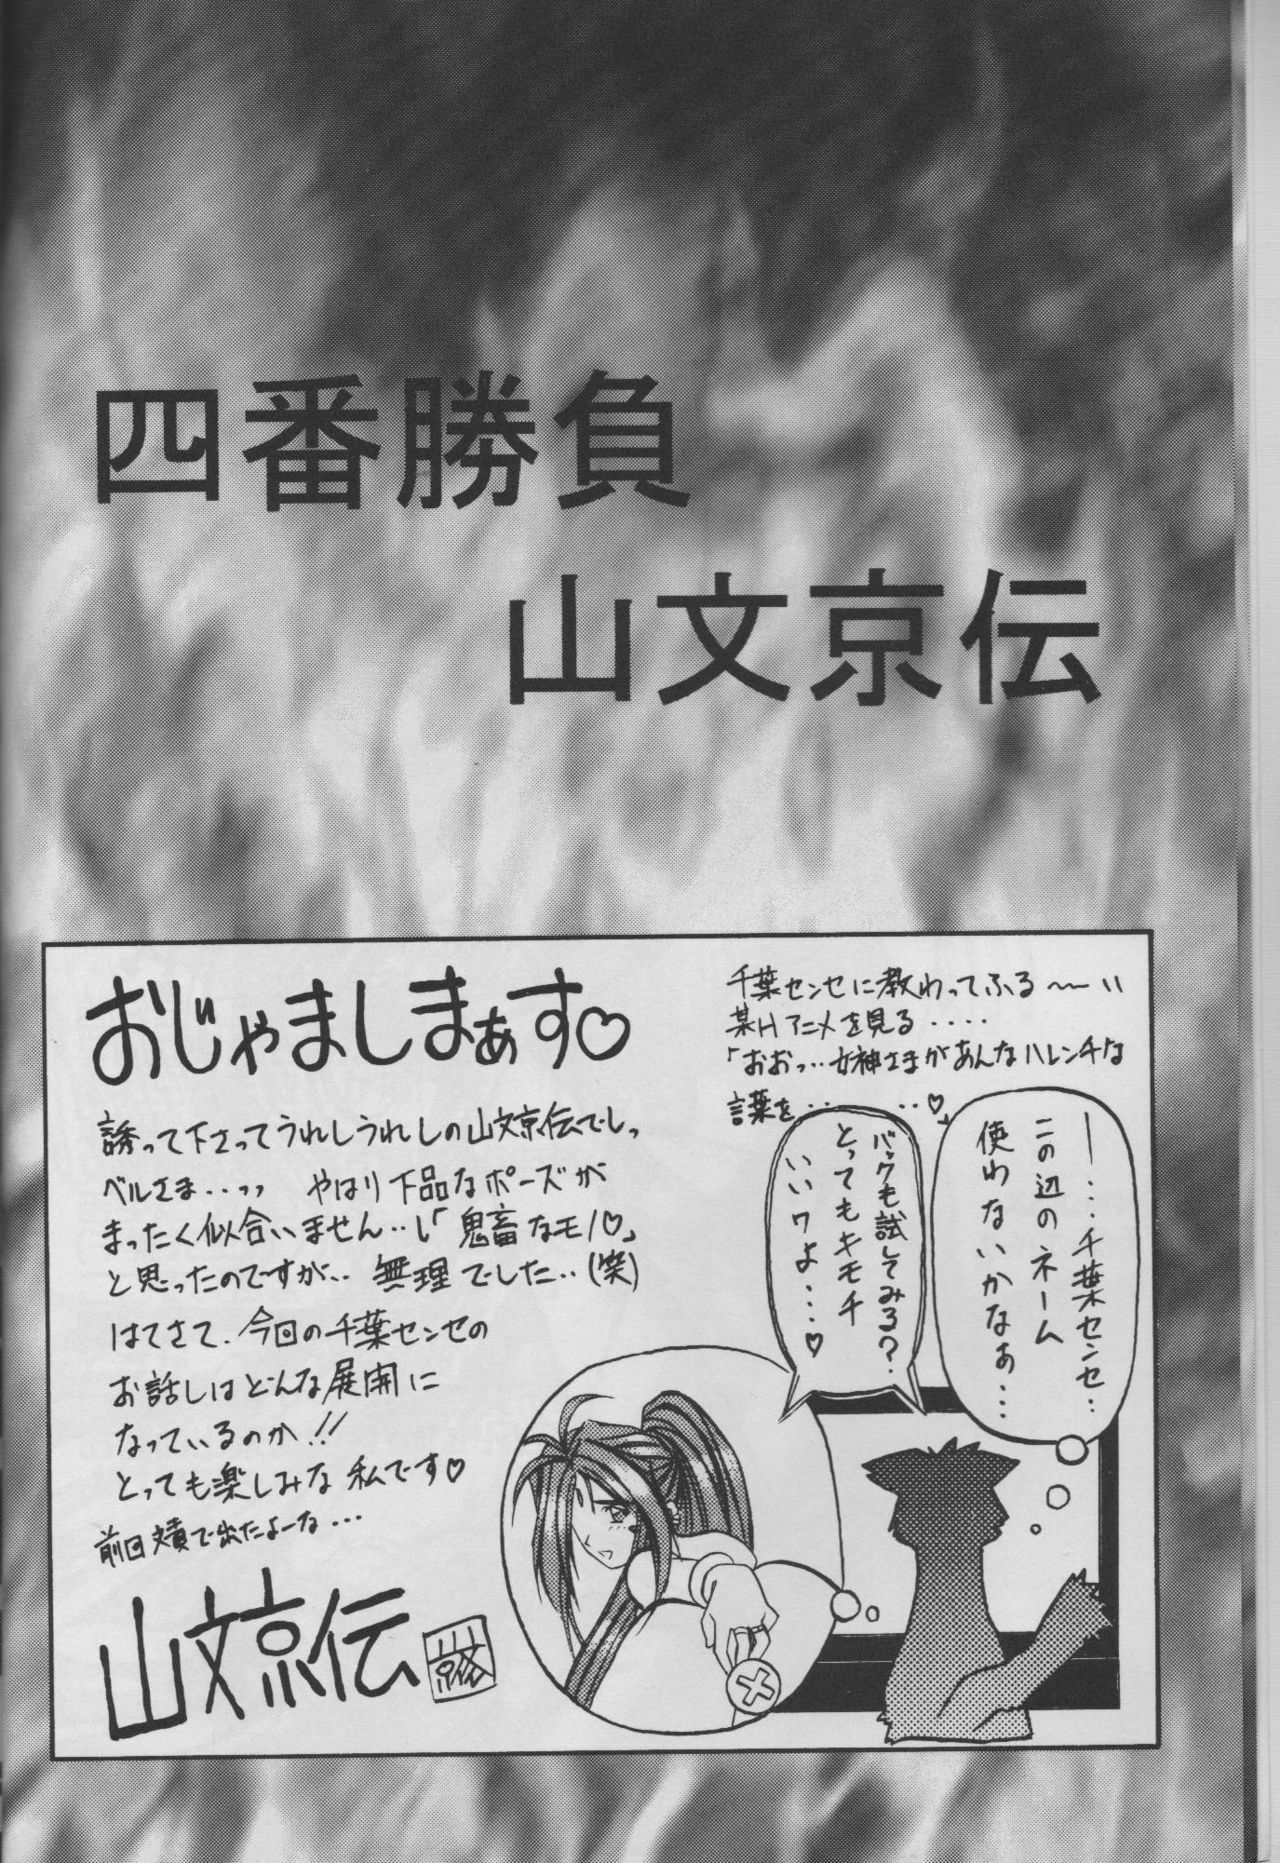 四番勝負
山文京伝
おじゃましまぁす♡
誘って下さってうれしうれしの山文京伝でしっ
ベルさま‥っっ やはり下品なポーズが
まったく似合いません‥し「鬼畜なモノ♡」
と思ったのですが‥ 無理でした‥(笑)
はてさて、今回の千葉センセの
お話しはどんな展開に
なっているのか!!
とっても楽しみな私です♡
前回文責で出たよーな…
山文京伝
千葉センセに教わってふる〜〜い
某Hアニメを見る‥‥
「おおっ…女神さまがあんなハレンチな
言葉を‥‥‥♡」
ー…千葉センセ‥
この辺のネーム
使わないかなぁ…
バックも試してみる?‥
とってもキモチ
いいワよ…♡